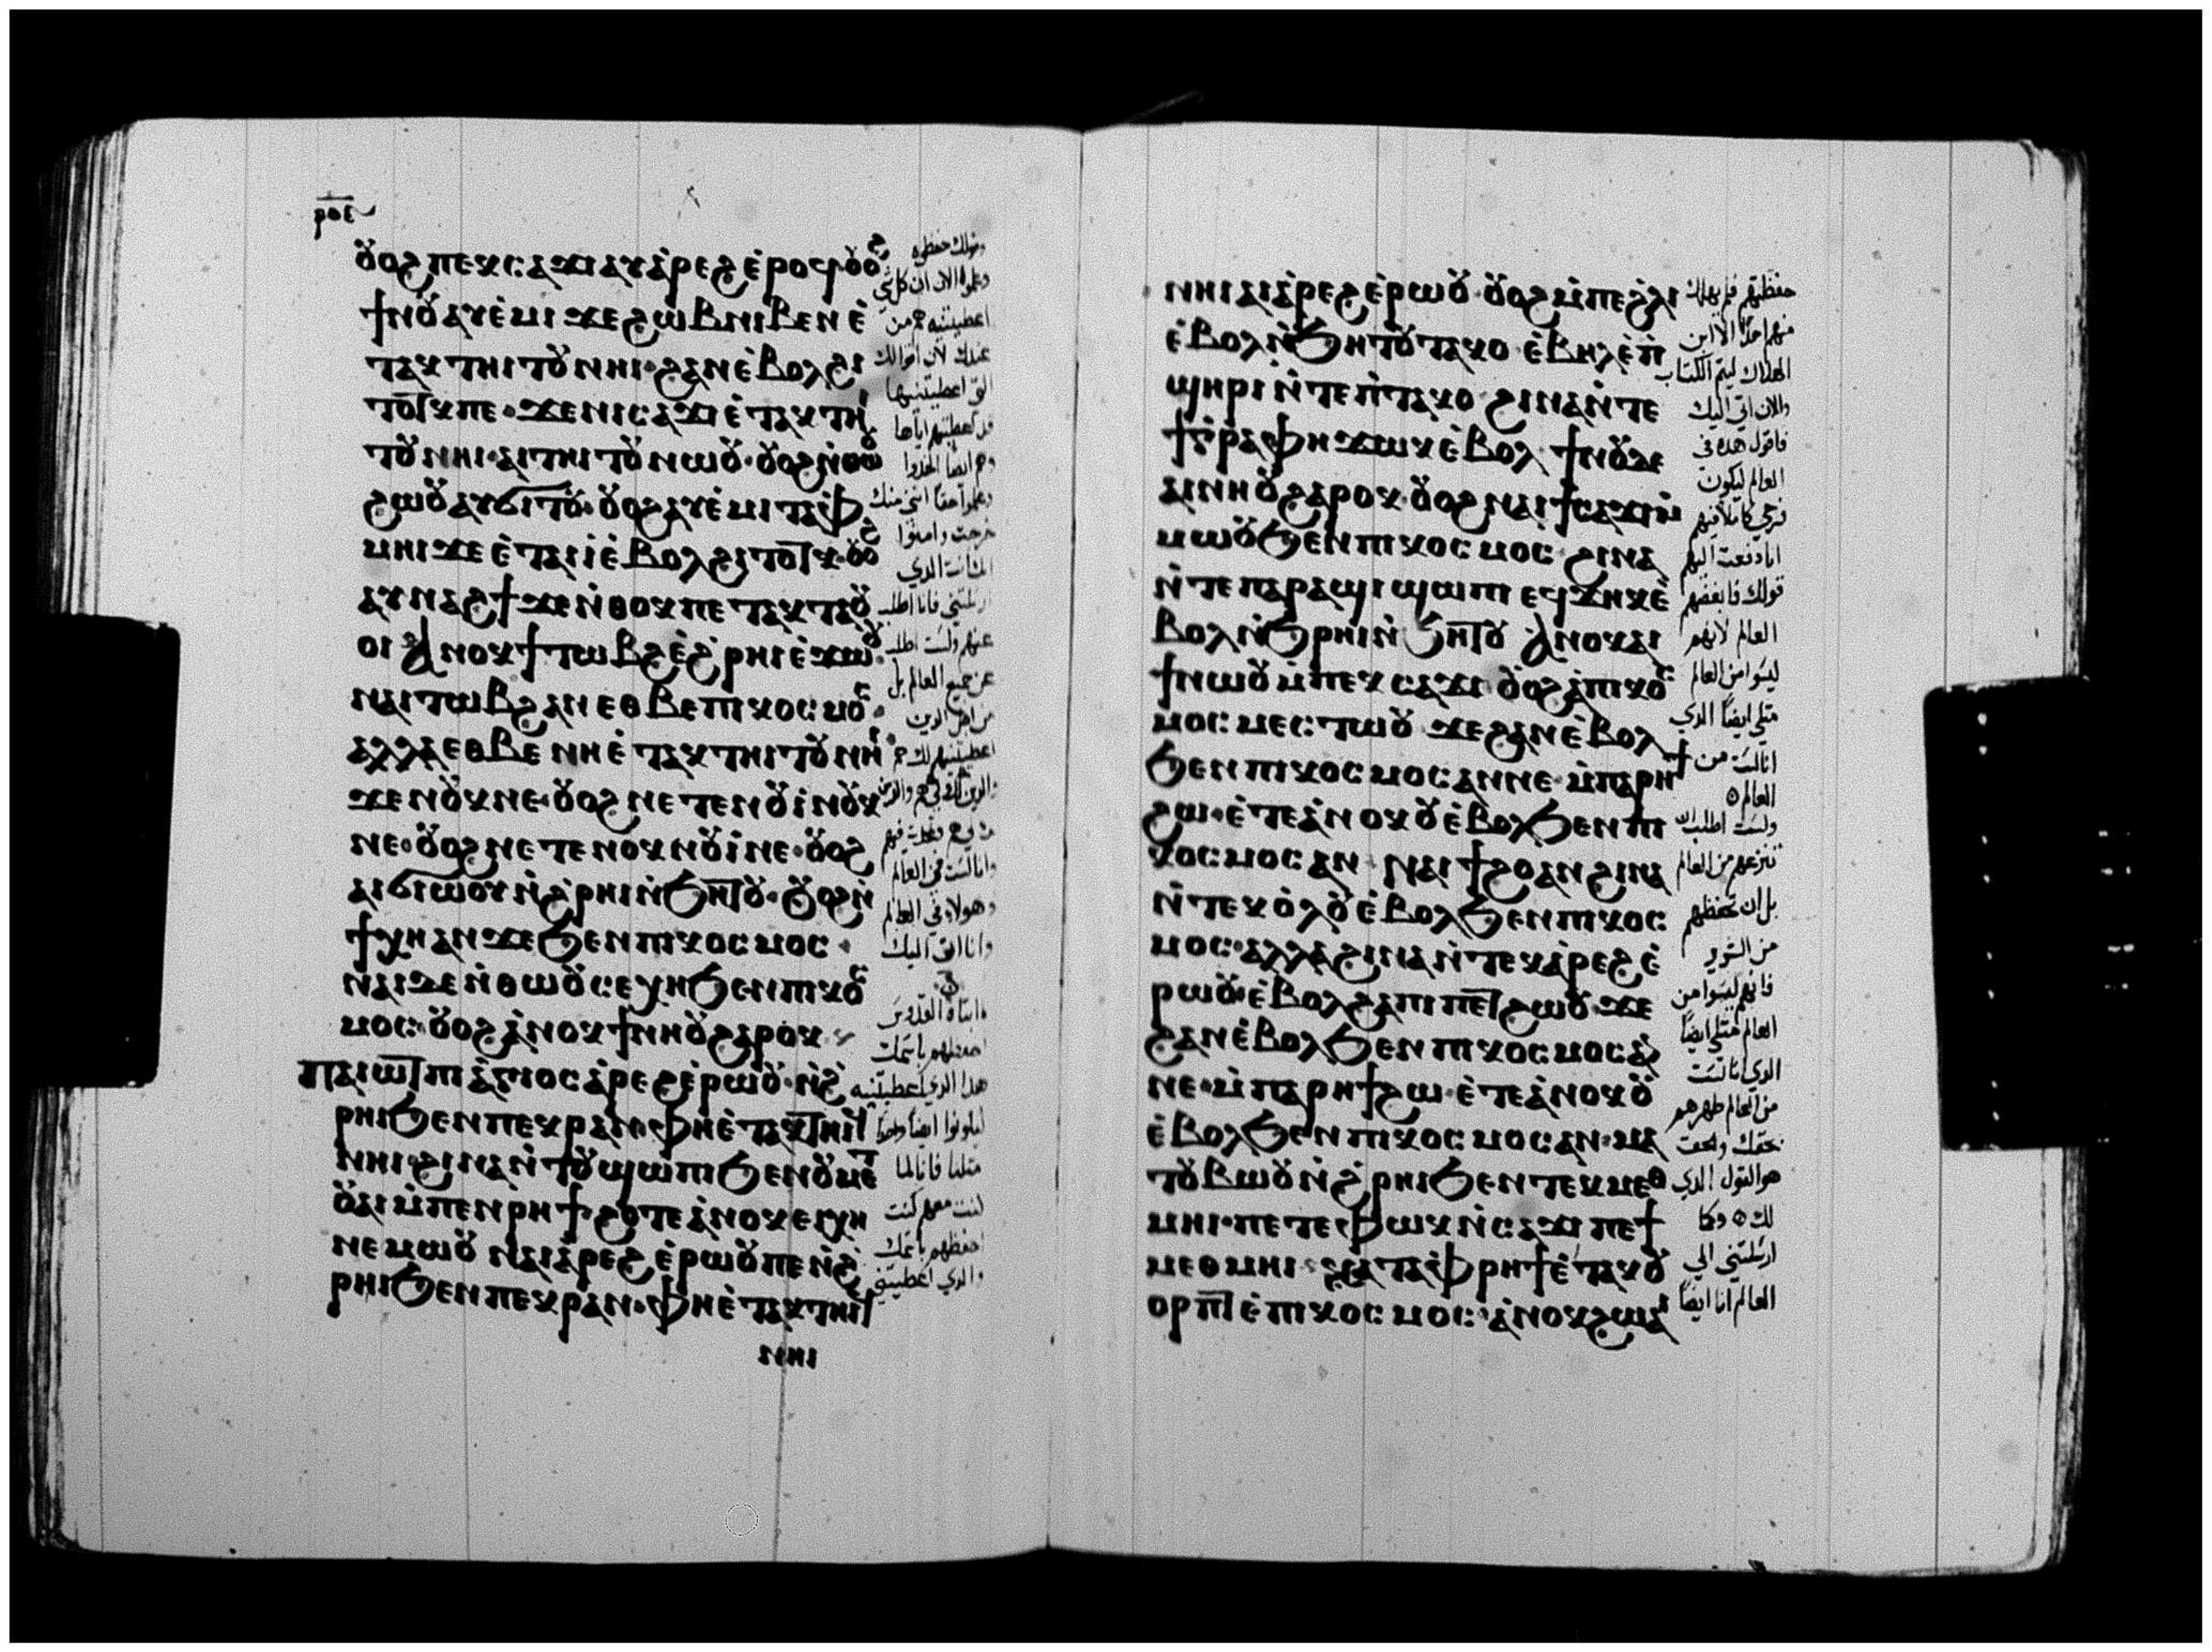 ⲣⲟⲉ
ⲟⲩⲟϩ ⲡⲉⲕⲥⲁϫⲓ ⲁⲩⲁ̀ⲣⲉϩ ⲉ̀ⲣⲟϥ ⲟⲩⲟϩ
ϯⲛⲟⲩ ⲁⲩⲉ̀ⲙⲓ ϫⲉ ϩⲱⲃ ⲛⲓⲃⲉⲛ ⲉ̀
ⲧⲁⲕⲧⲏⲓⲧⲟⲩ ⲛⲏⲓ· ϩⲁⲛⲉ̀ⲃⲟⲗ ϩⲓ
ⲧⲟⲧⲕ ⲡⲉ· ϫⲉ ⲛⲓⲥⲁϫⲓ ⲉ̀ⲧⲁⲕⲧⲏⲓ
ⲧⲟⲩ ⲛⲏⲓ· ⲁⲓⲧⲏⲓⲧⲟⲩ ⲛⲱⲟⲩ· ⲟⲩⲟϩ ⲛ̀ⲑⲱⲟⲩ
ϩⲱⲟⲩ ⲁⲩϭⲓⲧⲟⲩ· ⲟⲩⲟϩ ⲁⲩⲉ̀ⲙⲓ ⲧⲁⲫ
ⲙⲏⲓ ϫⲉ ⲉ̀ⲧⲁⲓⲓ̀ ⲉ̀ⲃⲟⲗ ϩⲓⲧⲟⲧⲕ· ⲟⲩⲟϩ
ⲁⲩⲛⲁϩϯ ϫⲉ ⲛ̀ⲑⲟⲕ ⲡⲉⲧⲁⲕⲧⲁⲟⲩ
ⲟⲓ ⲁⲛⲟⲕ ϯⲧⲱⲃϩ ⲉ̀ϩ̀ⲣⲏⲓ ⲉ̀ϫⲱⲟⲩ
ⲛⲁⲓⲧⲱⲃϩ ⲁⲛ ⲉⲑⲃⲉ ⲡⲓⲕⲟⲥⲙⲟⲥ·
ⲁⲗⲗⲁ ⲉⲑⲃⲉ ⲛⲏ ⲉ̀ⲧⲁⲕⲧⲏⲓⲧⲟⲩ ⲛⲏⲓ
ϫⲉ ⲛⲟⲩⲕ ⲛⲉ· ⲟⲩⲟϩ ⲛⲉⲧⲉⲛⲟⲩⲓ̀ ⲛⲟⲩⲕ
ⲛⲉ· ⲟⲩⲟϩ ⲛⲉⲧⲉⲛⲟⲩⲕ ⲛⲟⲩⲓ̀ ⲛⲉ· ⲟⲩⲟϩ
ⲁⲓϭⲓⲱⲟⲩ ⲛ̀ϩ̀ⲣⲏⲓ ⲛ̀ϧⲏⲧⲟⲩ· ⲟⲩⲟϩ ⲛ̀
ϯⲭⲏ ⲁⲛ ϫⲉ ϧⲉⲛ ⲡⲓⲕⲟⲥⲙⲟⲥ·
ⲛⲁⲓ ⲇⲉ ⲛ̀ⲑⲱⲟⲩ ⲥⲉⲭⲏ ϧⲉⲛ ⲡⲓⲕⲟⲥ
ⲙⲟⲥ· ⲟⲩⲟϩ ⲁ̀ⲛⲟⲕ ϯⲛⲏⲟⲩ ϩⲁⲣⲟⲕ
ⲡⲁⲓⲱⲧ ⲡⲓⲁ̀ⲅⲓⲟⲥ ⲁ̀ⲣⲉϩ ⲉ̀ⲣⲱⲟⲩ· ⲛ̀ϩ̀
ⲣⲏⲓ ϧⲉⲛ ⲡⲉⲕⲣⲁⲛ· ⲫⲏ ⲉ̀ⲧⲁⲕⲧⲏⲓϥ
ⲛⲏⲓ· ϩⲓⲛⲁ ⲛ̀ⲧⲟⲩϣⲱⲡⲓ ϧⲉⲛ ⲟⲩⲙⲉⲧ
ⲟⲩⲁⲓ ⲙ̀ⲡⲉⲛⲣⲏϯ· ϩⲟⲧⲉ ⲁ̀ⲛⲟⲕ ⲉⲓⲭⲏ
ⲛⲉⲙⲱⲟⲩ ⲛⲁⲓⲁ̀ⲣⲉϩ ⲉ̀ⲣⲱⲟⲩ ⲡⲉ ⲛ̀ϩ̀
ⲣⲏⲓ ϧⲉⲛ ⲡⲉⲕⲣⲁⲛ· ⲫⲏ ⲉ̀ⲧⲁⲕⲧⲏⲓϥ
ⲛⲏⲓ
وقولك حفظوه
وعلموا الان ان كل شي
اعطيتنيه هو من
عندك لان اقوالك
التي اعطيتنيها
قد اعطيتهم اياها
وهم ايضا اخذوا
وعلموا حقا انني منك
خرجت وامنوا
انك انت الذي
ارسلتني فانا اطلب
عنهم ولست اطلب
عن جميع العالم بل
من اجل الذين
اعطيتنيهم لك هم
وانا لست في العالم
وهولاء في العالم
وانا اتي اليك
احفظهم باسمك
هذا الذي اعطيتنيه
ليكونوا ايضا واحدا
مثلنا فانا لما
كنت معهم كنت
احفظهم باسمك
والذي اعطيتني
ⲛⲏⲓ ⲁⲓⲁ̀ⲣⲉϩ ⲉ̀ⲣⲱⲟⲩ· ⲟⲩⲟϩ ⲙ̀ⲡⲉ ϩ̀ⲗⲓ
ⲉ̀ⲃⲟⲗ ⲛ̀ϧⲏⲧⲟⲩ ⲧⲁⲕⲟ· ⲉ̀ⲃⲏⲗ ⲉ̀ⲡ̀
ϣⲏⲣⲓ ⲛ̀ⲧⲉ ⲡ̀ⲧⲁⲕⲟ· ϩⲓⲛⲁ ⲛ̀ⲧⲉ
ϯⲅ̀ⲣⲁⲫⲏ ϫⲱⲕ ⲉ̀ⲃⲟⲗ· ϯⲛⲟⲩ ⲇⲉ
ⲁⲓⲛⲏⲟⲩ ϩⲁⲣⲟⲕ· ⲟⲩⲟϩ ⲛⲁⲓ ϯⲥⲁϫⲓ ⲙ̀
ⲙⲱⲟⲩ ϧⲉⲛ ⲡⲓⲕⲟⲥⲙⲟⲥ· ϩⲓⲛⲁ
ⲛ̀ⲧⲉ ⲡⲁⲣⲁϣⲓ ϣⲱⲡⲓ ⲉϥϫⲏⲕ ⲉ̀
ⲃⲟⲗ ⲛ̀ϧ̀ⲣⲏⲓ ⲛ̀ϧⲏⲧⲟⲩ ⲁⲛⲟⲕ ⲁⲓ
ϯ ⲛⲱⲟⲩ ⲙ̀ⲡⲉⲕⲥⲁϫⲓ ⲟⲩⲟϩ ⲁ̀ ⲡⲓⲕⲟⲥ
ⲙⲟⲥ ⲙⲉⲥⲧⲱⲟⲩ ϫⲉ ϩⲁⲛⲉ̀ⲃⲟⲗ
ϧⲉⲛ ⲡⲓⲕⲟⲥⲙⲟⲥ ⲁⲛ ⲛⲉ· ⲙ̀ⲡⲁⲣⲏϯ
ϩⲱ· ⲉ̀ⲧⲉ ⲁ̀ⲛⲟⲕ ⲟⲩⲉ̀ⲃⲟⲗ ϧⲉⲛ ⲡⲓ
ⲕⲟⲥⲙⲟⲥ ⲁⲛ· ⲛⲁⲓϯϩⲟ ⲁⲛ ϩⲓⲛⲁ
ⲛ̀ⲧⲉⲕⲟ̀ⲗⲟⲩ ⲉ̀ⲃⲟⲗ ϧⲉⲛ ⲡⲓⲕⲟⲥ
ⲙⲟⲥ· ⲁⲗⲗⲁ ϩⲓⲛⲁ ⲛ̀ⲧⲉⲕⲁ̀ⲣⲉϩ ⲉ̀
ⲣⲱⲟⲩ· ⲉ̀ⲃⲟⲗϩⲁ ⲡⲓⲡⲉⲧϩⲱⲟⲩ· ϫⲉ
ϩⲁⲛⲉ̀ⲃⲟⲗ ϧⲉⲛ ⲡⲓⲕⲟⲥⲙⲟⲥ ⲁⲛ
ⲛⲉ· ⲙ̀ⲡⲁⲣⲏϯ ϩⲱ· ⲉ̀ⲧⲉ ⲁ̀ⲛⲟⲕ ⲟⲩ
ⲉ̀ⲃⲟⲗ ϧⲉⲛ ⲡⲓⲕⲟⲥⲙⲟⲥ ⲁⲛ· ⲙⲁ
ⲧⲟⲩⲃⲱⲟⲩ ⲛ̀ϩ̀ⲣⲏⲓ ϧⲉⲛ ⲧⲉⲕⲙⲉⲑ
ⲙⲏⲓ· ⲡⲉⲧⲉ ⲫⲱⲕ ⲛ̀ⲥⲁϫⲓ ⲡⲉ ϯ
ⲙⲉⲑⲙⲏⲓ· ⲕⲁⲧⲁ ⲫ̀ⲣⲏϯ ⲉ̀ⲧⲁⲕⲟⲩ
ⲟⲣⲡⲧ ⲉ̀ⲡⲓⲕⲟⲥⲙⲟⲥ· ⲁ̀ⲛⲟⲕ ϩⲱ ⲁⲓ
حفظتهم فلم يهلك
منهم احدا الا ابن
الهلاك ليتم الكتاب
والان اتي اليك
فاقول هذه في
العالم ليكون
فرحي كاملا فيهم
انا دفعت اليهم
قولك فابغضهم
العالم لانهم
ليسوا من العالم
مثلي ايضا الذي
انا لست من
العالم
ولست اطلب ان
تنزعهم من العالم
بل ان تحفظهم
من الشرير
فانهم ليسوا من
العالم مثلي ايضا
الذي انا لست
من العالم طهرهم
بحقك والحق
هو القول الذي
لك وكما
ارسلتني الي
العالم انا ايضا